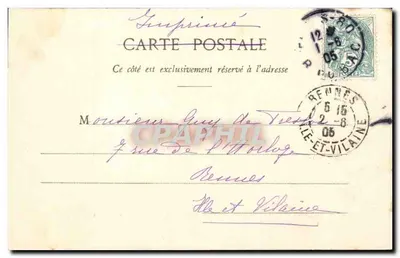 Imprimé
CARTE POSTALE
Ce côté est exclusivement réservé à l'adresse
12
1-6
05
R. DU BAC
RENNES
6 15
2-6
05
ILLE-ET-VILAINE
Monsieur Guy de
CPAPHIL
7 rue de l'Horloge
Rennes
Ille et Vilaine